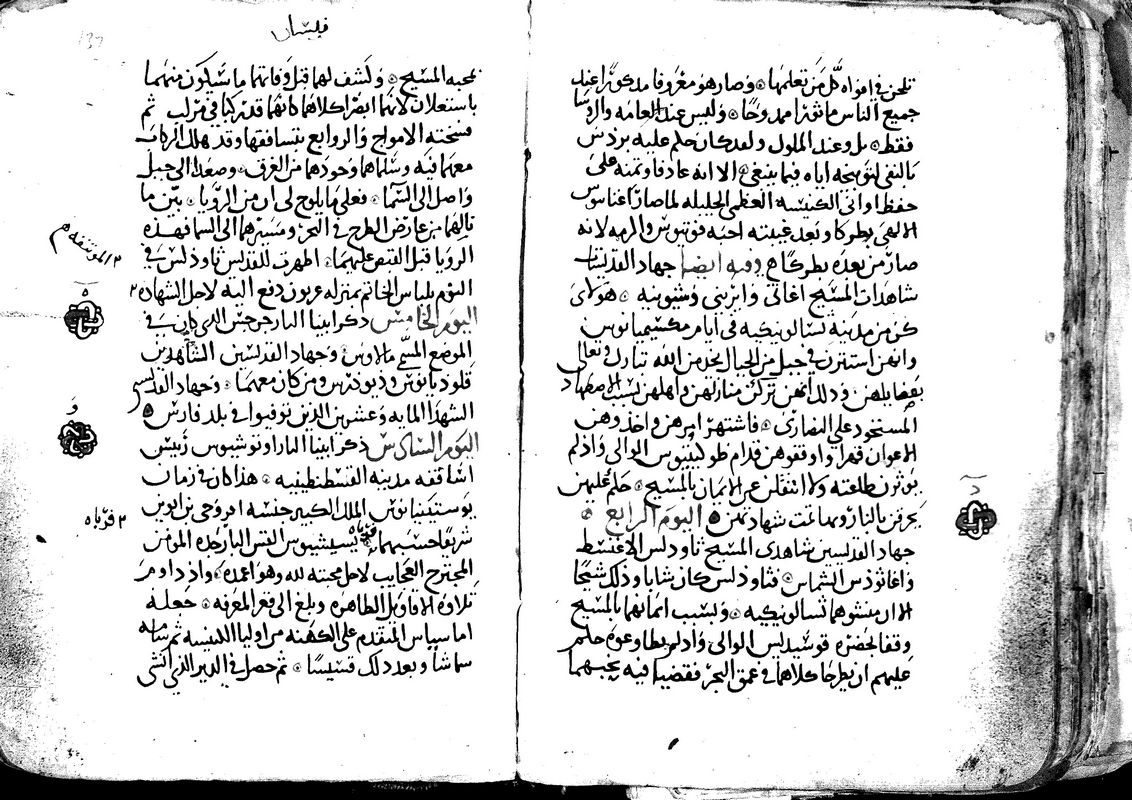 تلحن في افواه كل من تعلمها وصار هو معروفا مذكورا عند
جميع الناس ماثورا ممدوحا وليس عند العامه والروسا
فقط بل وعند الملوك ولقد كان حكم عليه بردس
بالنفي لتوبيخه اياه فيما ينبغي الا انه عاد فاوتمنه على
حفظ اواني الكنيسه العظمى الجليله لما صار اغناتيوس
الالهي بطركا وبعد غيبته احبه فوتيوس والزمه لانه
صار من بعده بطركا وفيه ايضا جهاد القديسات
شاهدات المسيح اغابي وايريني وشيونيه هولاى
كن من مدينة تسالونيكيه في ايام مكسيميانوس
وانهن استترن في جبل من الجبال يخدمن الله تبارك وتعالى
بفضايلهن وذلك انهن تركن منازلهن واهلهن لسبب الاضطهاد
المستحود على النصارى فاشتهر امرهن واخذوهن
الاعوان قهرا واوقفوهن قدام الوالي واذ لم
يوثرن طاعته ولا انتقلن عن الايمان بالمسيح حكم عليهن
يحرقن بالنار وبها تمت شهادتهن اليوم الرابع
جهاد القديسين شاهدى المسيح ثاودلس الاغنسط
واغاثوذس الشماس فثاودلس كان شابا وذلك شيخا
الا ان منشوهما تسالونيكيه وبسبب ايمانهما بالمسيح
وقفا بحضره الوالي واذ لم يطاوعوه حكم
عليهم ان يطرحا كلاهما في عمق البحر فقضيا فيه نحبهما
نيسان
لمحبه المسيح وكشف لهما قبل وفاتهما ما سيكون منهما
باستعلان لانهما ابصرا كلاهما كانهما قد ركبا في مركب ثم
فسخته الامواج والزوابع تتسافقها وقد هلك الركاب
معهما فيه وسلما هما وحدهما من الغرق وصعدا الى جبل
واصل الى السما فعلى ما يلوح لي ان من الرؤيا بين ما
نالهما من عارض الطرح في البحر ومسيرهما الى السما فهذه
الرؤيا قبل القبض عليهما اظهرت للقديس ثاودلس في
النوم بلباس الخاتم بمنزله عربون دفع اليه لاجل الشهاده
اليوم الخامس ذكر ابينا البار جرجس الذي كان في
الموضع المسمى وجهاد القديسين الشاهدين
قلوديانوس وذيوذرس ومن كان معهما وجهاد القديسين
الشهدا المايه وعشرين الذين توفيوا في بلد فارس
اليوم السادس ذكر ابينا البار اوتوشيوس رييس
اساقفه مدينه القسطنطينيه هذا كان في زمان
يوستينيانوس الملك الكبير جنسه افروجي بن ابوين
شريفا حسبهما يسيشيوس القس البار جده المومن
المجترح العجايب لاجل محبته لله وهو اعمده واذ داوم
تلاوة الاقاويل الطاهره وبلغ الى قعر المعرفه جعله
اماسياس المتقدم على الكهنه من اوليا الكنيسه ثم شامه
شماسا وبعد ذلك قسيسا ثم حصل في الدير الذي انشى